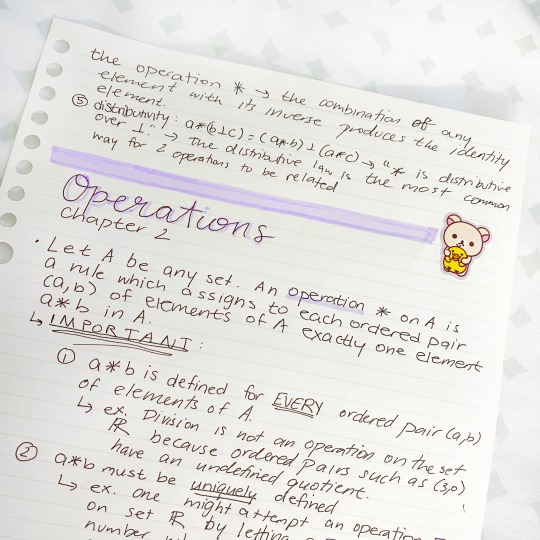 the operation * → the combination of any
element with its inverse produces the identity
element.
⑤ distributivity: a*(b⊥c) = (a*b)⊥(a*c) → "* is distributive
over ⊥" → The distributive law is the most common
way for 2 operations to be related
Operations
chapter 2
• Let A be any set. An operation * on A is
a rule which assigns to each ordered pair
(a,b) of elements of A exactly one element
a*b in A.
↳ IMPORTANT:
① a*b is defined for EVERY ordered pair (a,b)
of elements of A.
↳ ex. Division is not an operation on the set
ℝ because ordered pairs such as (3,0)
have an undefined quotient.
② a*b must be uniquely defined
↳ ex. one might attempt an operation
on set ℝ by letting a
number